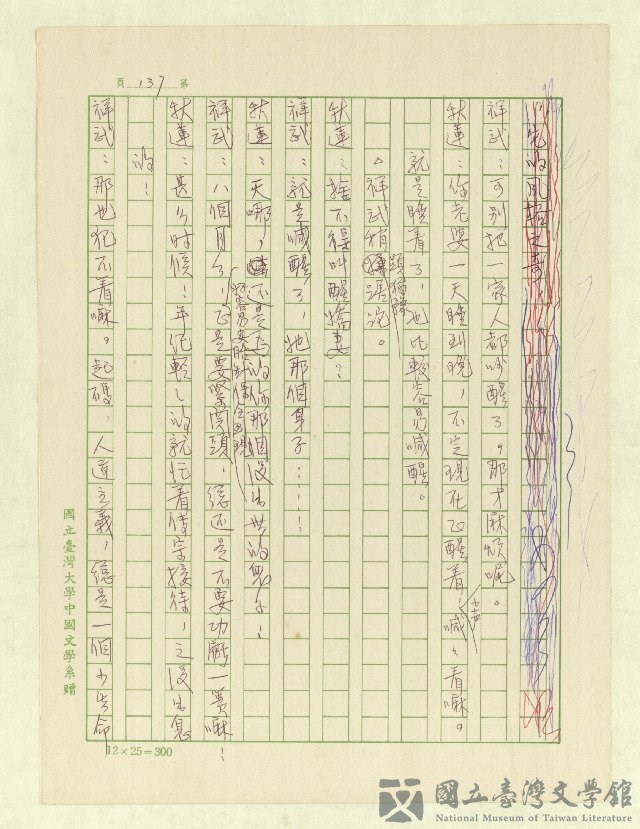 第 137 頁
祥武：可別把一家人都吵醒了。那才麻煩呢。
秋蓮：你老婆一天睡到晚，不定現在正醒着，小声喊喊看嘛。
就是睡着了，也比較容易喊醒。
△祥武稍躊躇說。
秋蓮：捨不得叫醒嬌妻？
祥武：就是喊醒了，她那個身子……!!
秋蓮：天哪，還是為的你那個沒出世的兒子！
祥武：八個月了，正是要緊関頭，好容易要脸到保全的現，總還是不要功虧一簣嘛！
秋蓮：甚么时候！年纪輕輕的就忙着傳宗接待，之沒出息
的！
祥武：那也犯不着嘛。起碼，人道主義，總是一個小生命
12×25=300
國立臺灣大學中國文學系贈
國立臺灣文學館
National Museum of Taiwan Literature